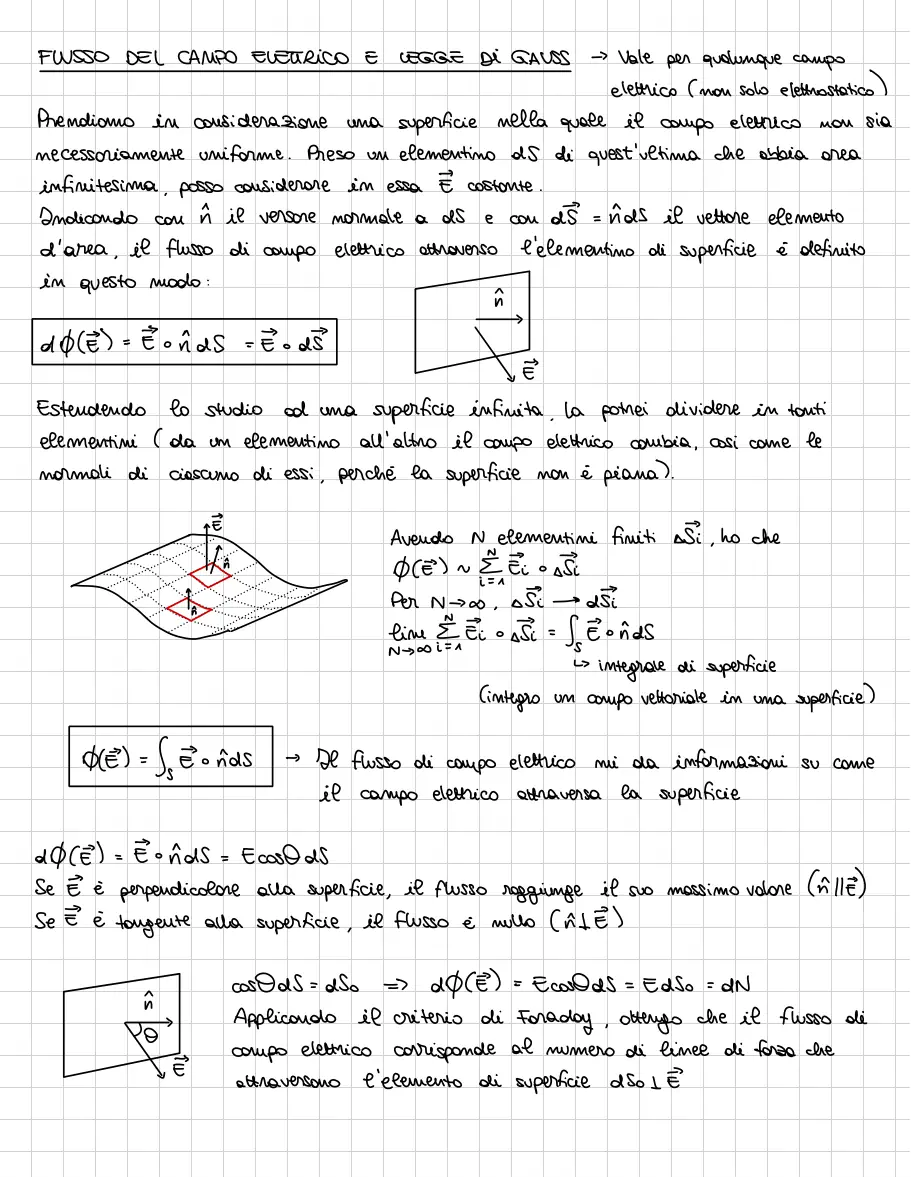 FLUSSO DEL CAMPO ELETTRICO E LEGGE Di GAUSS → Vale per qualunque campo
elettrico (non solo elettrostatico)
Prendiamo in considerazione una superficie nella quale il campo elettrico non sia
necessariamente uniforme. Preso un elementino dS di quest'ultima che abbia area
infinitesima, posso considerare in essa E⃗ costante.
Indicando con n̂ il versore normale a dS e con dS⃗ = n̂dS il vettore elemento
d'area, il flusso di campo elettrico attraverso l'elementino di superficie é definito
in questo modo:
n̂
dϕ(E⃗) = E⃗ ∘ n̂ dS = E⃗ ∘ dS⃗
E⃗
Estendendo lo studio ad una superficie infinita, la potrei dividere in tanti
elementini (da un elementino all'altro il campo elettrico cambia, così come le
normali di ciascuno di essi, perché la superficie non é piana).
E⃗
n̂
n̂
Avendo N elementini finiti ΔS⃗i, ho che
ϕ(E⃗) ~ Σ_{i=1}^{N} E⃗i ∘ ΔS⃗i
Per N→∞, ΔS⃗i → dS⃗i
lim_{N→∞} Σ_{i=1}^{N} E⃗i ∘ ΔS⃗i = ∫_S E⃗ ∘ n̂dS
↳ integrale di superficie
(integro un campo vettoriale in una superficie)
ϕ(E⃗) = ∫_S E⃗ ∘ n̂dS → Il flusso di campo elettrico mi da informazioni su come
il campo elettrico attraversa la superficie
dϕ(E⃗) = E⃗ ∘ n̂dS = EcosΘdS
Se E⃗ è perpendicolare alla superficie, il flusso raggiunge il suo massimo valore (n̂ || E⃗)
Se E⃗ è tangente alla superficie, il flusso é nullo (n̂ ⊥ E⃗)
n̂
Θ
E⃗
cosΘdS = dS₀ => dϕ(E⃗) = EcosΘdS = EdS₀ = dN
Applicando il criterio di Faraday, ottengo che il flusso di
campo elettrico corrisponde al numero di linee di forza che
attraversano l'elemento di superficie dS₀ ⊥ E⃗